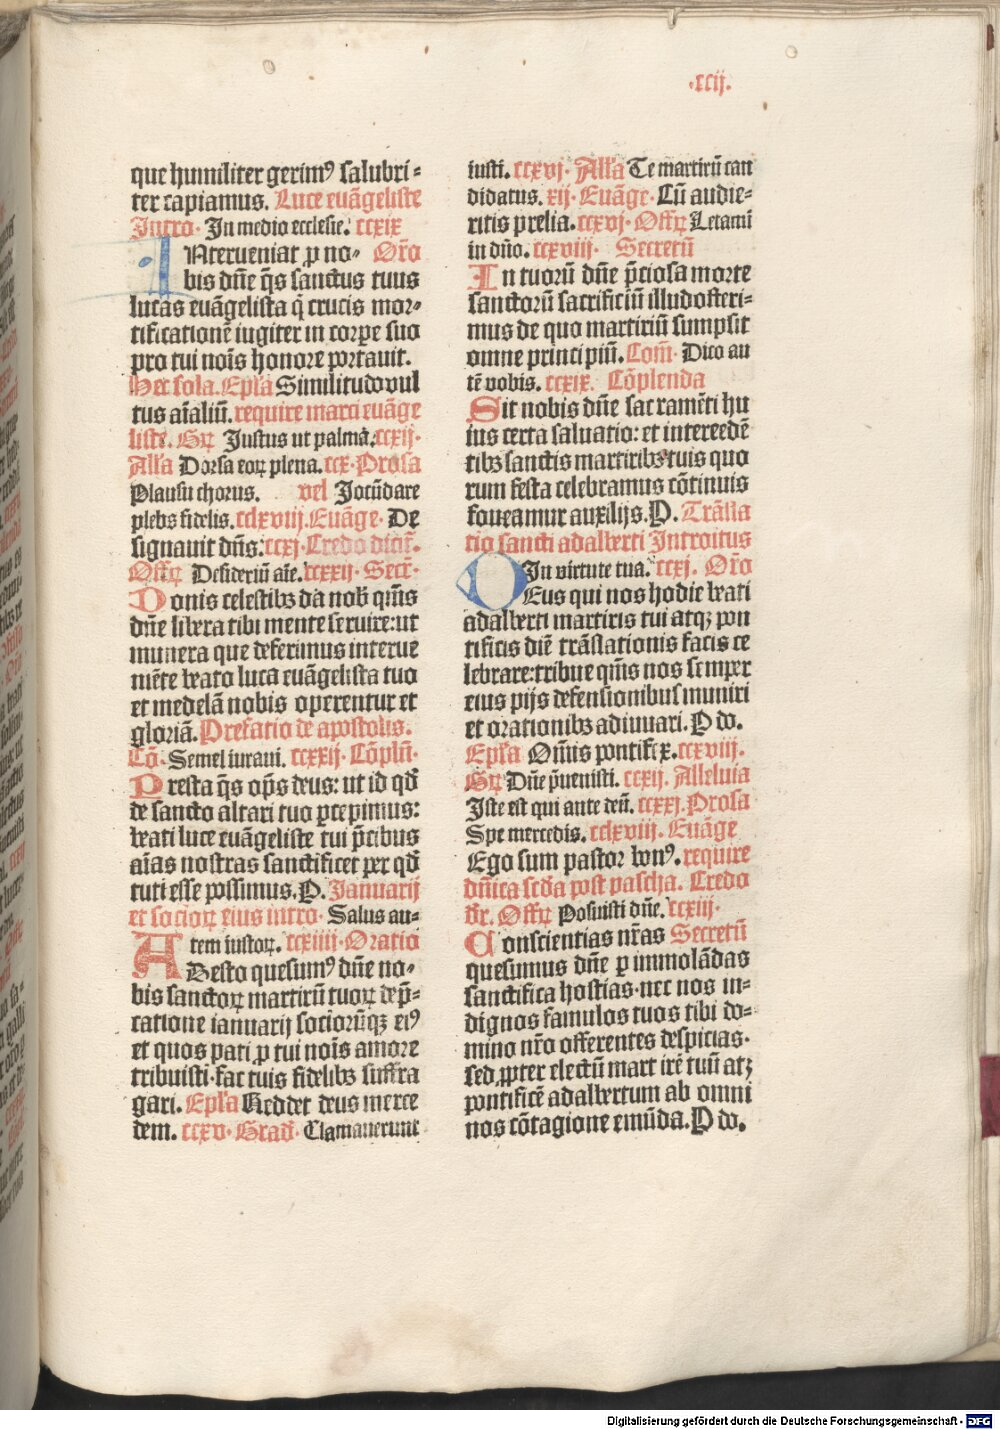 ·xcij.
que humiliter gerimꝰ salubri-
ter capiamus. Luce euāgeliste
Intro· In medio ecclesie. ccxix
INterueniat ꝓ no- Oro̅
bis dn̄e q̄s sanctus tuus
lucas euāgelista q̇ crucis mor-
tificationē iugiter in corpe suo
pro tui noīs honore portauit.
Hec sola. Epl̄a Similitudo vul
tus aīaliū. require marci euāge
liste. Gꝝ Justus ut palma. ccxij.
All̄a Dorsa eoꝝ plena. ccx. Prosa
Plausu chorus. vel Jocūdare
plebs fidelis. cclxviij. Euāge· De
signauit dn̄s. ccxj. Credo dicit̄.
Offꝝ Desideriū aīe. ccxxij· Secr̄·
Donis celestibꝫ da nob̄ qm̄s
dn̄e libera tibi mente seruire: ut
munera que deferimus interue
niēte beato luca euāgelista tuo
et medelā nobis operentur et
gloriā. Prefatio de apostolis.
Cō· Semel iuraui. ccxxij· Cōplū·
Presta q̄s op̄s deus: ut id qd̄
de sancto altari tuo ꝑcepimus:
beati luce euāgeliste tui p̄cibus
aīas nostras sanctificet per qd̄
tuti esse possimus. P. Januarij
et socioꝝ eius intro· Salus au-
tem iustoꝝ. ccxiiij· Oratio
ADesto quesumꝰ dn̄e no-
bis sanctoꝝ martirū tuoꝝ dep̄-
catione ianuarij sociorūqꝫ eiꝰ
et quos pati ꝓ tui noīs amore
tribuisti· fac tuis fidelibꝫ suffra
gari. Epl̄a Reddet deus merce
dem. ccxv· Grad̄· Clamauerunt
iusti. ccxvj· All̄a Te martirū can
didatus. xij· Euāge· Cū audie-
ritis prelia. ccxvj· Offꝝ Letamī
in dn̄o. ccxviij. Secretū
In tuorū dn̄e p̄ciosa morte
sanctorū sacrificiū illud offeri-
mus de quo martiriū sumpsit
omne principiū. Com̄· Dico au
tē vobis. ccxix. Cōplenda
Sit nobis dn̄e sacramēti hu
ius certa saluatio: et intercedē
tibꝫ sanctis martiribꝫ tuis quo
rum festa celebramus cōtinuis
foueamur auxilijs. P. Trāsla
tio sancti adalberti Introitus
In virtute tua. ccxj. Oro̅
DEus qui nos hodie beati
adalberti martiris tui atqꝫ pon
tificis diē trāslationis facis ce
lebrare: tribue qm̄s nos semper
eius pijs defensionibus muniri
et orationibꝫ adiuuari. P do.
Epl̄a Om̄is pontifex. ccxviij.
Gꝝ Dn̄e p̄uenisti. ccxij. Alleluia
Iste est qui ante deū. ccxxj. Prosa
Spe mercedis. cclxviij. Euāge
Ego sum pastor bonꝰ. require
dn̄ica scd̄a post pascha. Credo
dr̄. Offꝝ Posuisti dn̄e. ccxiij·
Conscientias nr̄as Secretū
quesumus dn̄e ꝑ immolādas
sanctifica hostias· nec nos in-
dignos famulos tuos tibi do-
mino nr̄o offerentes despicias·
sed ꝓpter electū martirē tuū atqꝫ
pontificē adalbertum ab omni
nos cōtagione emūda. P do.
Digitalisierung gefördert durch die Deutsche Forschungsgemeinschaft - DFG